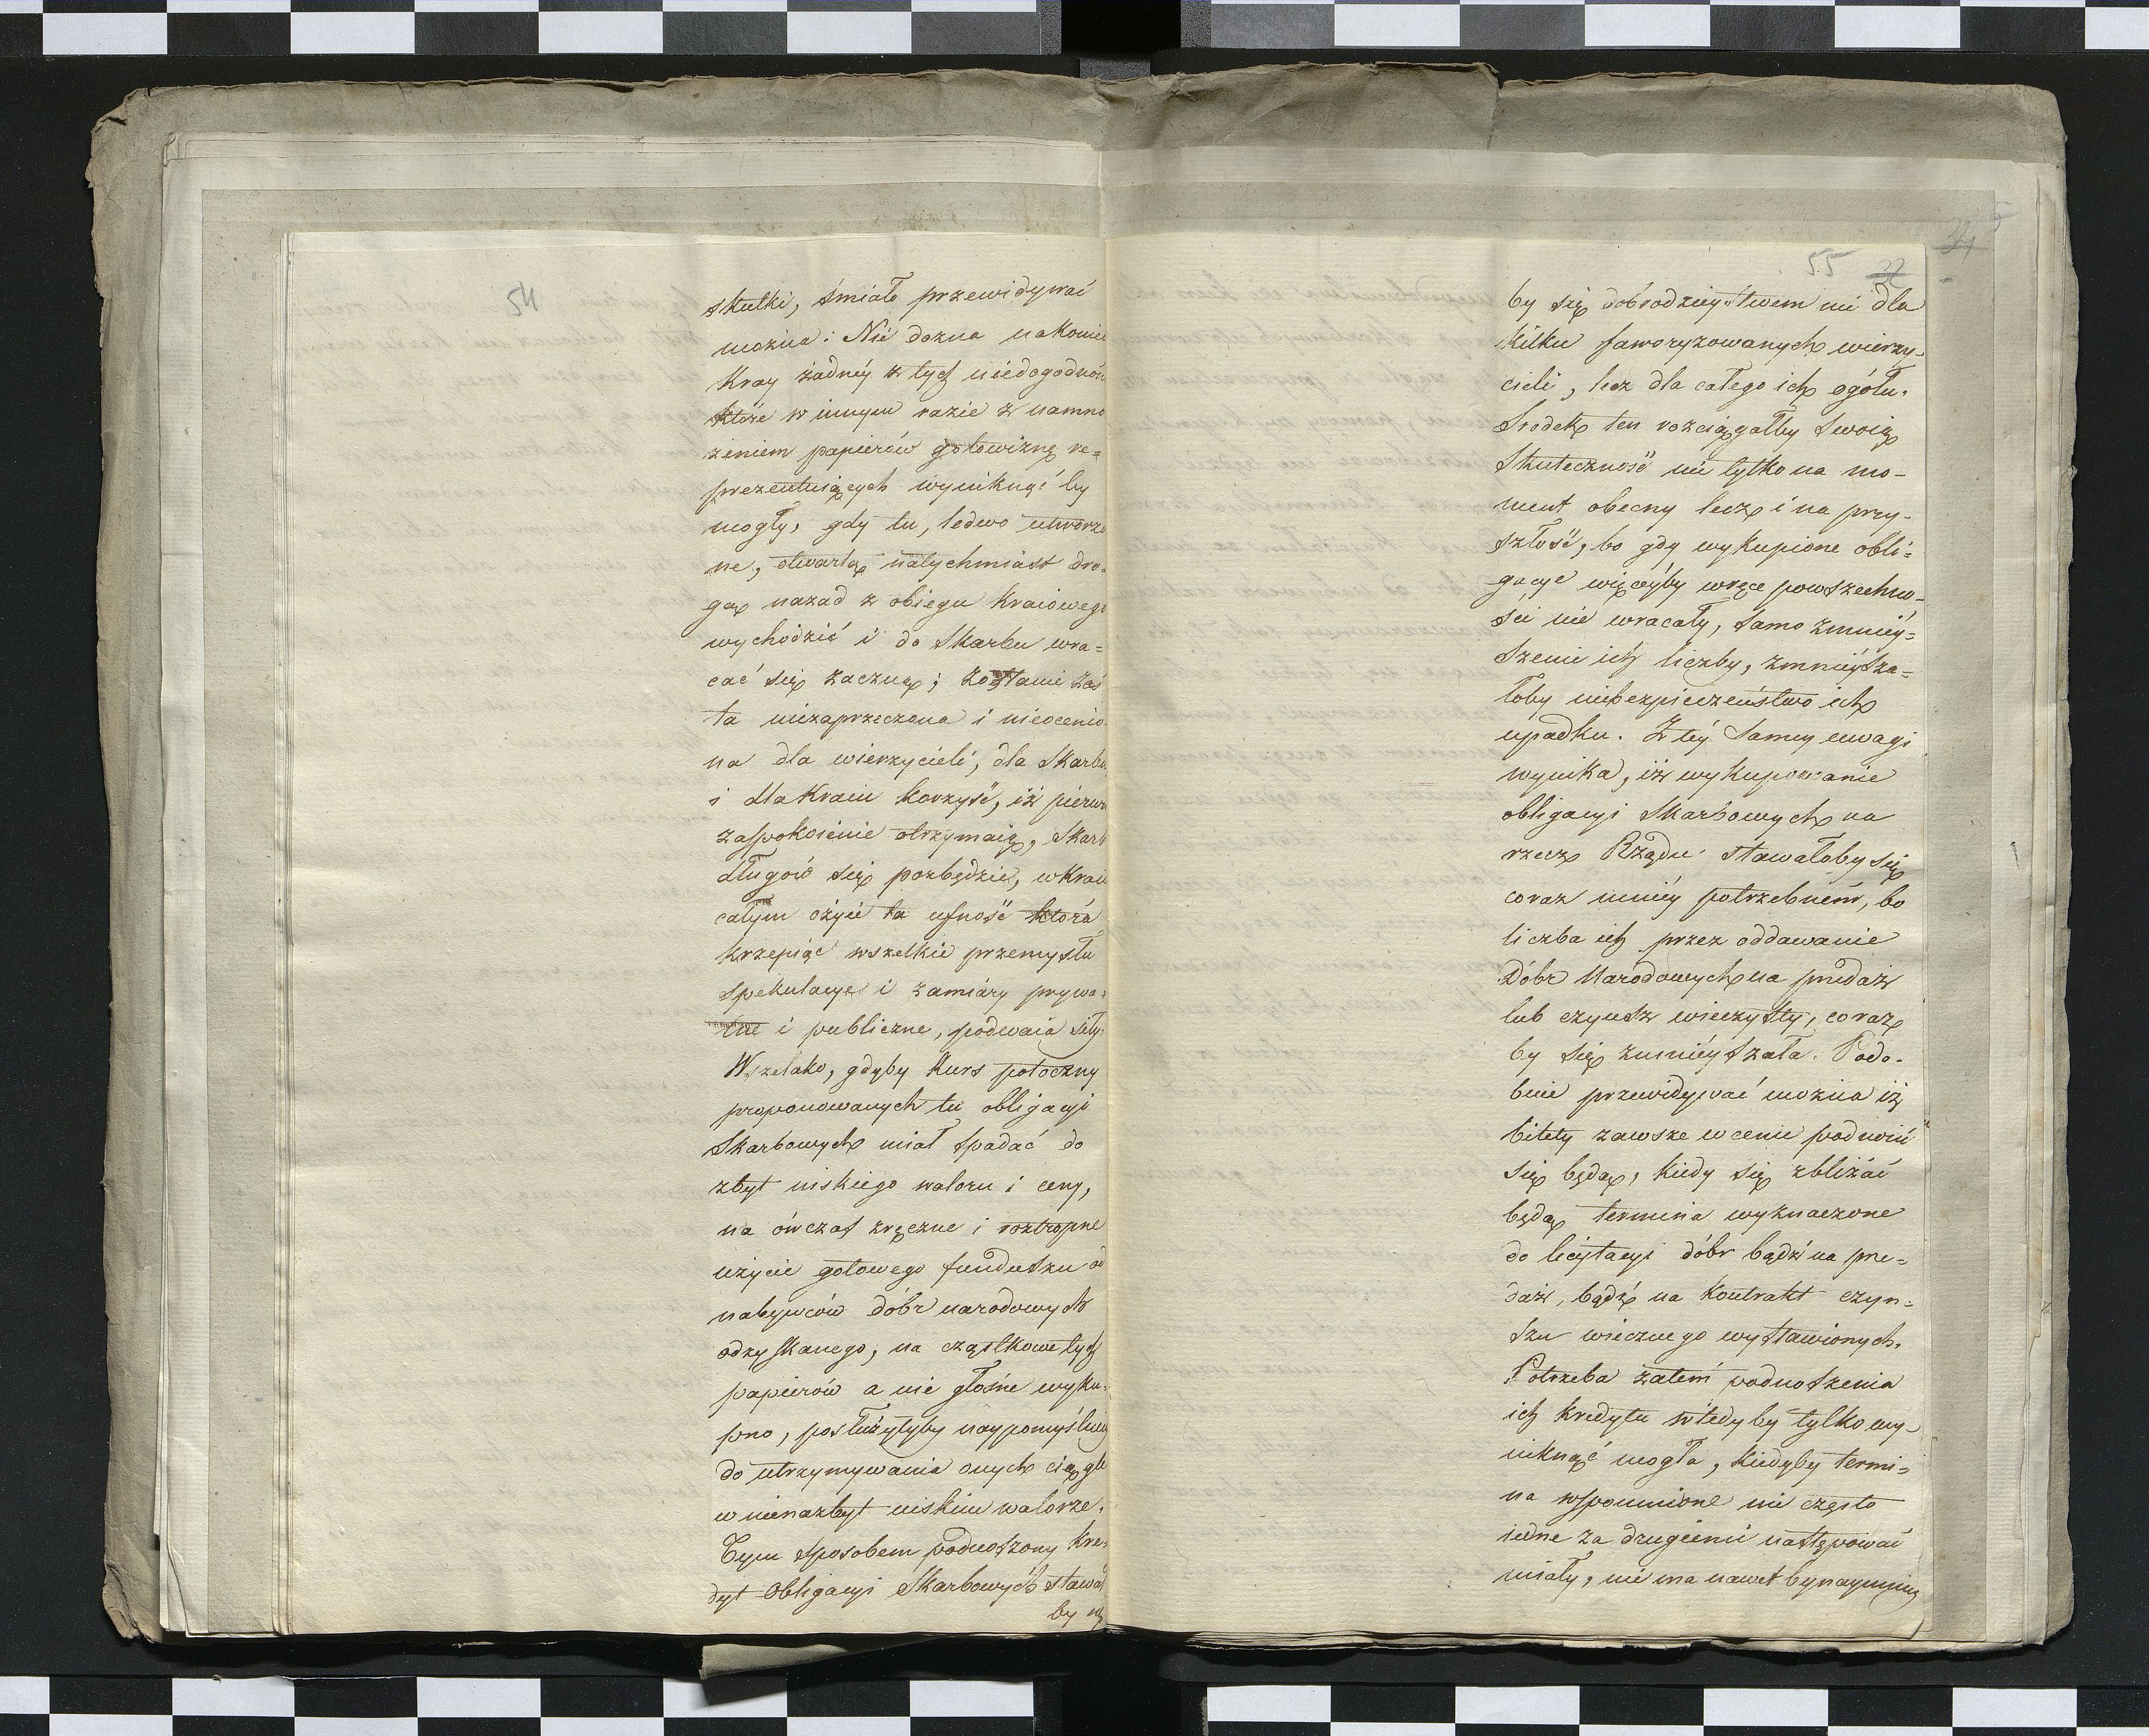 54
skutki, śmiało przewidywać
można: Nié dozna nakonie
Kray żadnéy z tych niedogodnoś
które w innym razie z namno
żeniem papierów gotowiznę re=
prezentuiących wyniknąć by
mogły, gdy tu, ledwo utworzo
ne, otwartą natychmiast dro=
gą nazad z obiegu kraiowego
wychodzić i do Skarbu wra=
cać się zaczną; zostanie zaś
ta niezaprzeczona i nieocenio
na dla wierzycieli, dla Skarbu
i dla Kraiu korzyść, iż pierwsi
zaspokoienie otrzymaią, Skarb
długów się pozbędzie, w Kraiu
całym ożyie ta ufność która
krzepiąc wszelkie przemysłu
spekulacye i zamiary prywa=
tne i publiczne, podwaia siły.
Wszelako, gdyby kurs potoczny
proponowanych tu obligacyi
Skarbowych miał spadać do
zbyt niskiego waloru i ceny,
na ów czas zręczne i roztropne
użycie gotowego funduszu od
nabywców dóbr narodowych
odzyskanego, na cząstkowe tych
papierów a nie głośne wyku=
pno, posłużyłyby naypomyślniey
do utrzymywania onych ciągle
w nienazbyt niskim walorze.
Tym sposobem podnoszony kre=
dyt Obligacyi Skarbowych stawał
by się
55 32
34
by się dobrodzieystwem nie dla
kilku faworyzowanych wierzy=
cieli, lecz dla całego ich ogółu.
Srodek ten rozciągałby swoią
skuteczność nie tylko na mo=
ment obecny lecz i na przy=
szłość, bo gdy wykupione obli=
gacye więcéyby w ręce powszechno=
ści nie wracały, samo zmniéy=
szenie ich liczby, zmniéysza=
łoby niebezpieczeństwo ich
upadku. Z téy samey uwagi
wynika, iż wykupowanie
obligacyi Skarbowych na
rzecz Rządu stawałoby się
coraz mniéy potrzebném, bo
liczba ich przez oddawanie
Dóbr Narodowych na przedaż
lub czynsz wieczysty, coraz
by się zmniéyszała. Podo=
bnie przewidywać można iż
bilety zawsze w cenie podnosić
się będą, kiedy się zbliżać
będą termina wyznaczone
do licytacyi dóbr bądź na prze=
daż, bądź na kontrakt czyn=
szu wiecznego wystawionych.
Potrzeba zatém podnoszenia
ich kredytu wtedyby tylko wy=
niknąć mogła, kiedyby termi=
na wspomnione nie często
iedne za drugiemi następować
miały, nie ma nawet bynaymniey